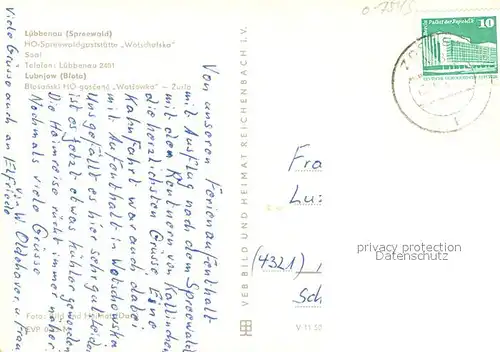 0-7515
Lübbenau (Spreewald)
HO-Spreewaldgaststätte „Wotschofska"
Saal
Telefon: Lübbenau 2601
Lubnjow (Błota)
Błośański HO-gosćeńc „Wótšowska" – Žurla
Von unseren Ferienaufenthalt
mit Ausflug nach dem Spreewald
mit den Rentnern von Kallinchen
die herzlichsten Grüsse. Eine
Kahnfahrt war auch dabei
mit Aufenthalt in Wotschowska
Uns gefällt es hier sehr gut leider
ist es jetzt etwas kühler geworden
Die Heimreise rückt immer näher.
Nochmals viele Grüsse
von W. Oldehaver u. Frau
Viele Grüsse auch an Elfriede
Foto: Bild und Heimat
EVP
VEB BILD UND HEIMAT REICHENBACH I. V.
V 11 52
Palast der Republik
10
Fra
Lu
(4321)
Sch
privacy protection
Datenschutz